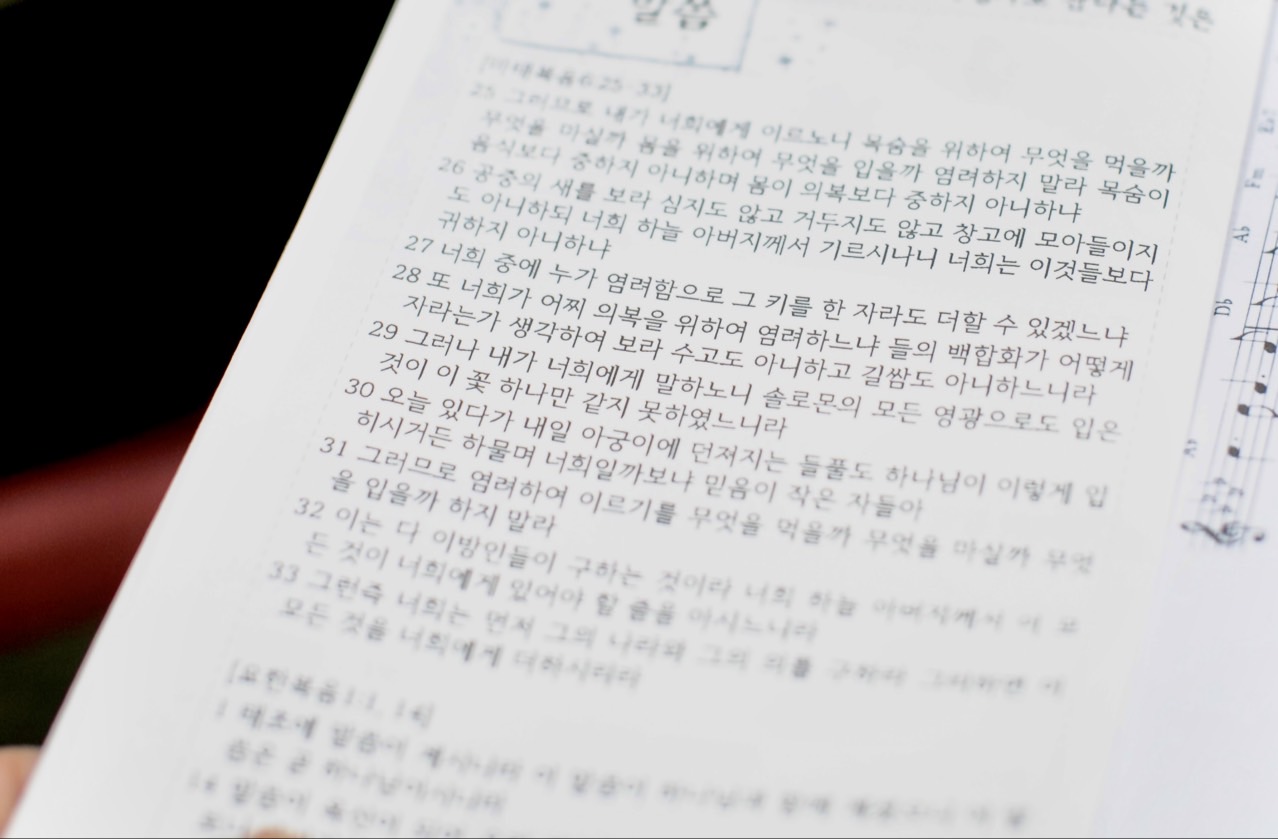 말씀
것은
[마태복음6:25-33]
25 그러므로 내가 너희에게 이르노니 목숨을 위하여 무엇을 먹을까
무엇을 마실까 몸을 위하여 무엇을 입을까 염려하지 말라 목숨이
음식보다 중하지 아니하며 몸이 의복보다 중하지 아니하냐
26 공중의 새를 보라 심지도 않고 거두지도 않고 창고에 모아들이지
도 아니하되 너희 하늘 아버지께서 기르시나니 너희는 이것들보다
귀하지 아니하냐
27 너희 중에 누가 염려함으로 그 키를 한 자라도 더할 수 있겠느냐
28 또 너희가 어찌 의복을 위하여 염려하느냐 들의 백합화가 어떻게
자라는가 생각하여 보라 수고도 아니하고 길쌈도 아니하느니라
29 그러나 내가 너희에게 말하노니 솔로몬의 모든 영광으로도 입은
것이 이 꽃 하나만 같지 못하였느니라
30 오늘 있다가 내일 아궁이에 던져지는 들풀도 하나님이 이렇게 입
히시거든 하물며 너희일까보냐 믿음이 작은 자들아
31 그러므로 염려하여 이르기를 무엇을 먹을까 무엇을 마실까 무엇
을 입을까 하지 말라
32 이는 다 이방인들이 구하는 것이라 너희 하늘 아버지께서 이 모
든 것이 너희에게 있어야 할 줄을 아시느니라
33 그런즉 너희는 먼저 그의 나라와 그의 의를 구하라 그리하면 이
모든 것을 너희에게 더하시리라
[요한복음1:1, 14]
1 태초에 말씀이 계시니라 이 말씀이 하나님과 함께
씀은 곧 하나님이시니라
14 말씀이 육신이 되어
Fm
Ab
Db